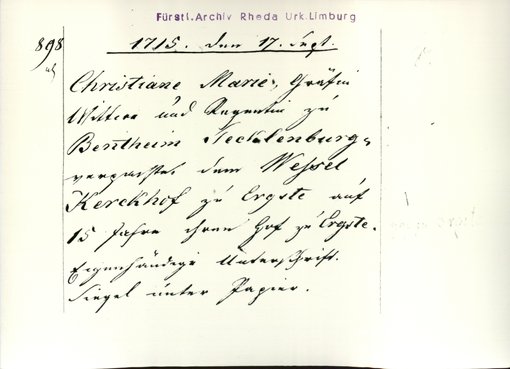 Fürstl. Archiv Rheda Urk. Limburg
898
1715. den 17. Sept.
Christiane Marie, Gräfin
Wittwe und Regentin zu
Bentheim Tecklenburg,
verpachtet dem Wessel
Kerckhof zu Ergste auf
15 Jahre ihren Hof zu Ergste.
Eigenhändige Unterschrift.
Siegel unter Papier.